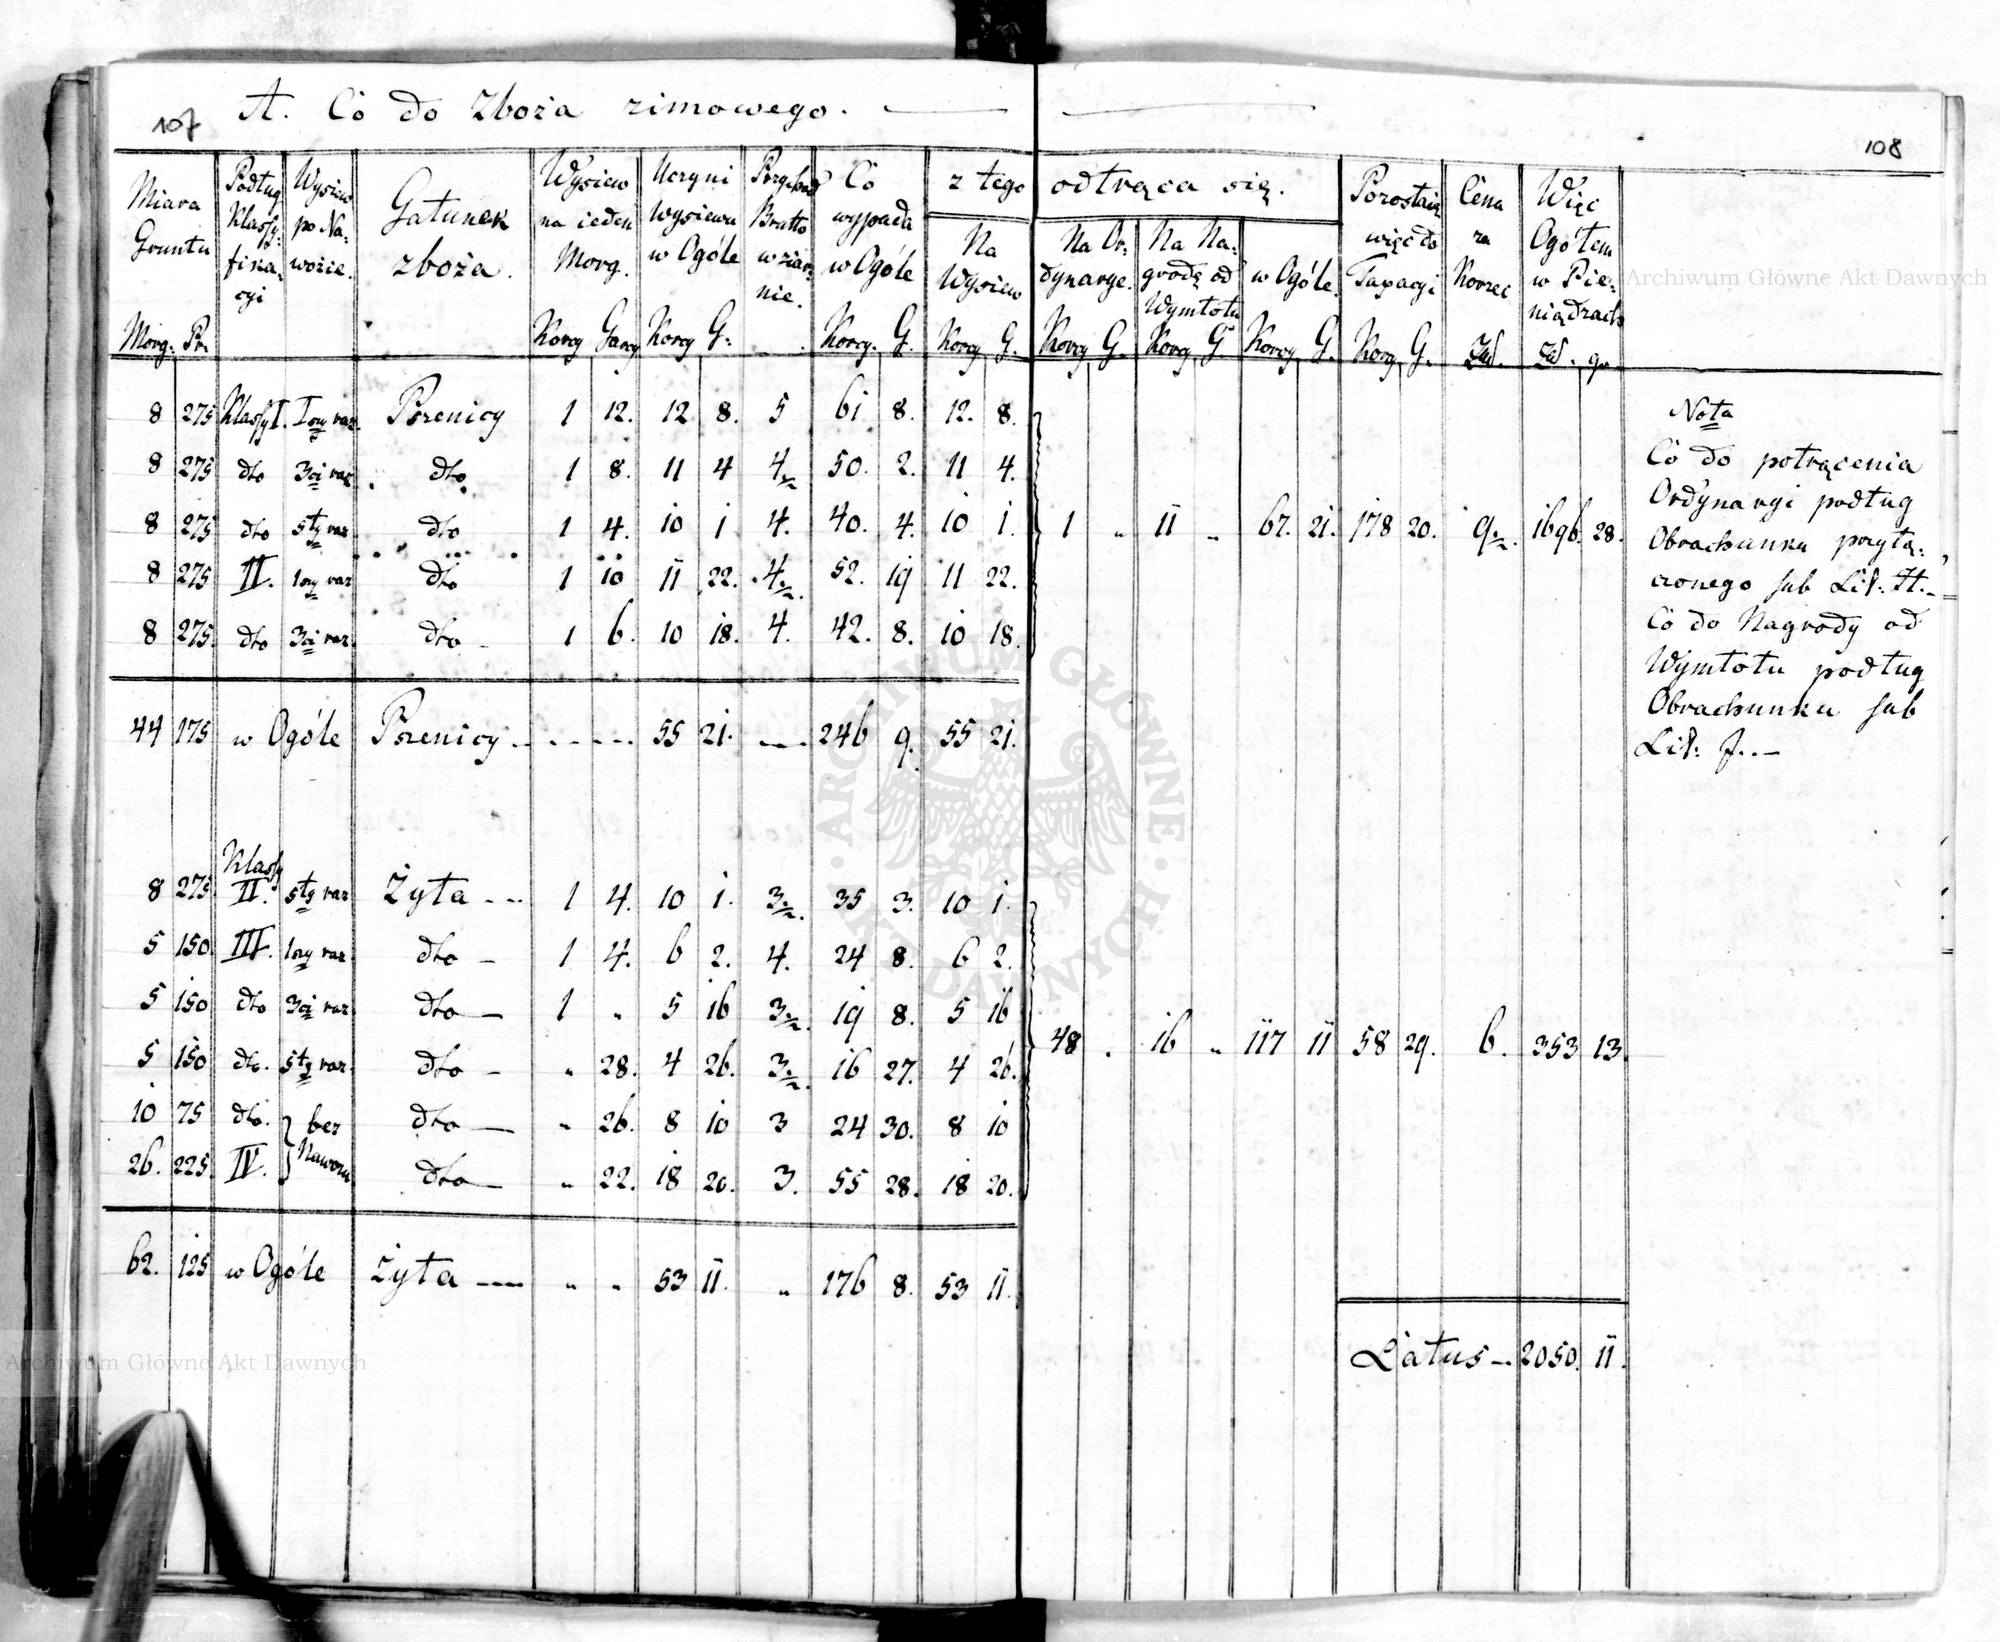 107
A. Co do Zboża zimowego.
108
Miara Gruntu
Podług Klassyfikacyi
Wysiew po Nawozie.
Gatunek zboża.
Wysiew na ieden Morg.
Uczyni wysiewu w Ogóle
Przychód Brutto w ziarnie.
Co wypada w Ogóle
z tego odtrąca się.
Na Wysiew
Na Ordynarye.
Na Nagrodę od Wymłotu
w Ogóle.
Pozostaie więc do Taxacyi
Cena za Korzec
Więc Ogółem w Pieniądzach
Morg. Pr. Korcy Garcy Korcy G. Korcy. G. Korcy G. Korcy G. Korcy G. Korcy G. Korcy G. Zł. Zł. gr.
8 275 Klassy I. 1szy raz Pszenicy 1 12. 12 8. 5 61 8. 12. 8.
8 275 dto 3ci raz dto 1 8. 11 4 4½ 50. 2. 11 4.
8 275 dto 5ty raz dto 1 4. 10 1 4. 40. 4. 10 1.
1 „ 11 „ 67. 21. 178 20. 9½. 1696. 28.
8 275 II. 1szy raz dto 1 10 11 22. 4½. 52. 19 11 22.
8 275. dto 3ci raz. dto 1 6. 10 18. 4. 42. 8. 10 18.
44 175 w Ogóle Pszenicy 55 21. 246 9. 55 21.
Klassy
8 275 II. 5ty raz Żyta 1 4. 10 1. 3½. 35 3. 10 1.
5 150 III. 1szy raz dto 1 4. 6 2. 4. 24 8. 6 2.
5 150 dto 3ci raz dto 1 „ 5 16 3½. 19 8. 5 16
48 „ 16 „ 117 11 58 29. 6. 353 13.
5 150 dto. 5ty raz. dto „ 28. 4 26. 3½. 16 27. 4 26.
10 75 dto. bez dto „ 26. 8 10 3 24 30. 8 10
26. 225. IV. Nawozu dto „ 22. 18 20. 3. 55 28. 18 20.
62. 125 w Ogóle Żyta „ „ 53 11. „ 176 8. 53 11.
Latus 2050. 11.
Nota
Co do potrącenia
Ordynaryi podług
Obrachunku przyłą-
czonego sub Lit: H.
Co do Nagrody od
Wymłotu podług
Obrachunku sub
Lit: J.
Archiwum Główne Akt Dawnych
Archiwum Główne Akt Dawnych
ARCHIWUM GŁÓWNE AKT DAWNYCH